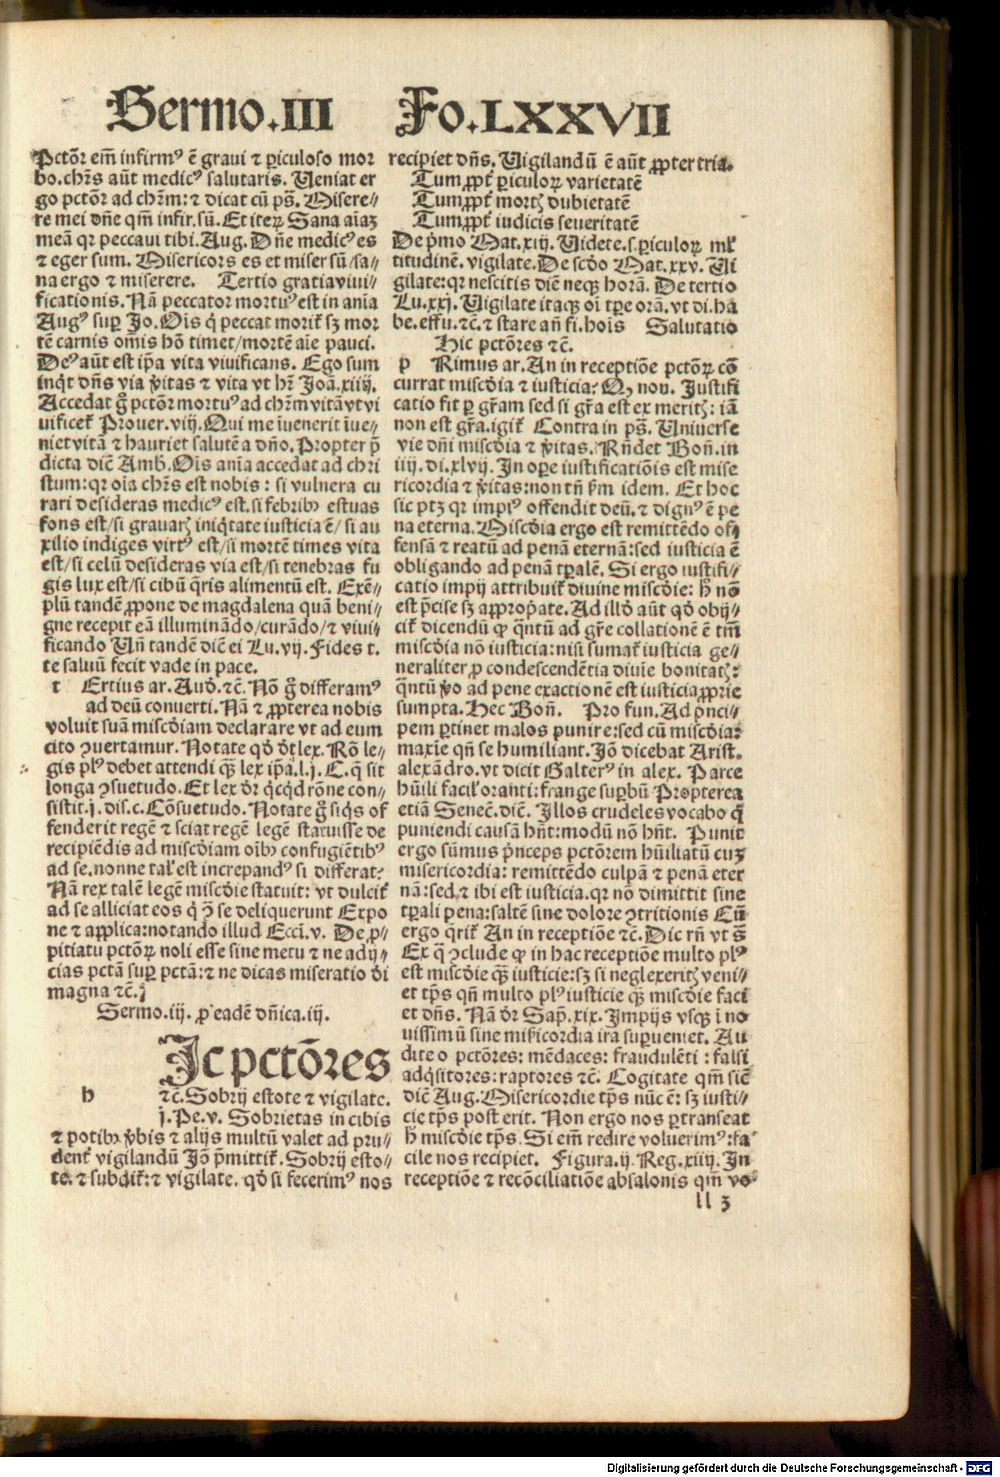 Sermo.III Fo.LXXVII
Pctōr em̄ infirmꝰ ē graui ⁊ ꝑiculoso mor
bo.chr̄s aūt medicꝰ salutaris. Ueniat er
go pctōr ad chr̄m: ⁊ dicat cū ps̄. Misere⸗
re mei dn̄e qm̄ infir.sū. Et iteꝝ Sana aīaꝫ
meā qꝛ peccaui tibi. Aug. Dn̄e medicꝰ es
⁊ eger sum. Misericors es et miser sū/sa⸗
na ergo ⁊ miserere. Tertio gratia viui⸗
ficationis. Nā peccator mortuꝰ est in anīa
Augꝰ suꝑ Jo. Oīs q̇ peccat moriť sꝫ mor
tē carnis oīns hō timet/mortē aīe pauci.
Deꝰ aūt est ip̄a vita viuificans. Ego sum
inq̇t dn̄s via v̓itas ⁊ vita vt hr̄ Joā.xiiij.
Accedat g̊ pctōr mortuꝰ ad chr̄m vitā vt vi
uificeť Prouer.viij. Qui me īuenerit īue⸗
niet vitā ⁊ hauriet salutē a dn̄o. Propter p̄
dicta diē Amb. Oīs anīa accedat ad chri
stum: qꝛ oīa chr̄s est nobis : si vulnera cu
rari desideras medicꝰ est. si febribꝰ estuas
fons est/si grauarꝭ iniq̇tate iusticia ē/ si au
xilio indiges virtꝰ est/si mortē times vita
est/si celū desideras via est/si tenebras fu
gis lux est/si cibū q̄ris alimentū est. Exē⸗
plū tandē ꝓpone de magdalena quā beni⸗
gne recepit eā illuminādo/curādo/⁊ viui⸗
ficando Un̄ tandē diē ei Lu.vij. Fides t.
te saluū fecit vade in pace.
t Ertius ar. Aud̓. ⁊c̄. Nō g̊ differamꝰ
ad deū conuerti. Nā ⁊ ꝓpterea nobis
voluit suā misc̓diam declarare vt ad eum
cito ꝯuertamur. Notate qd̓ d̓t lex. Rō le⸗
gis plꝰ debet attendi qꝫ̄ lex ip̄a.l.j. C. q̄ sit
longa ꝯsuetudo. Et lex d̓r q̇cq̇d rōne con⸗
sistit.j. dis.c. Cōsuetudo. Notate g̊ siq̇s of
fenderit regē ⁊ sciat regē legē statuisse de
recipiēdis ad misc̓diam oībꝰ confugiētibꝰ
ad se. nonne tal̓ est increpandꝰ si differat?
Nā rex talē legē misc̓die statuit: vt dulciť
ad se alliciat eos q̇ ꝯ̄ se deliquerunt Expo
ne ⁊ applica: notando illud Ecci.v. De ꝓ⸗
pitiatu pctōꝝ noli esse sine metu ⁊ ne adij⸗
cias pctā suꝑ pctā: ⁊ ne dicas miseratio d̓i
magna ⁊c̄.
Sermo.iij. ꝓ eadē dn̄ica.iij.
h Jc pctōres
⁊c̄. Sobrij estote ⁊ vigilate.
j. Pe.v. Sobrietas in cibis
⁊ potibꝰ v̓bis ⁊ alijs multū valet ad pru⸗
denť vigilandū Jō p̄mittiť. Sobrij esto⸗
te. ⁊ subdiť: ⁊ vigilate. qd̓ si fecerimꝰ nos
recipiet dn̄s. Uigilandū ē aūt ꝓpter tria.
Tum ꝓpt̓ ꝑiculoꝝ varietatē
Tum ꝓpt̓ mortꝭ dubietatē
Tum ꝓpt̓ iudicis seueritatē
De p̓mo Mat.xiij. Uidete.s. ꝑiculoꝝ ml̓
titudinē. vigilate. De scd̓o Mat.xxv. Ui
gilate: qꝛ nescitis diē neqꝫ horā. De tertio
Lu.xxj. Uigilate itaqꝫ oī tp̄e orā. vt di.ha
be.effu. ⁊c̄. ⁊ stare an̄ fi. hoīs Salutatio
Hic pctōres ⁊c̄.
p Rimus ar. An in receptiōe pctōꝝ cō
currat misc̓dia ⁊ iusticia? Ꝙ non. Justifi
catio fit ꝑ gr̄am sed si gr̄a est ex meritꝭ: iā
non est gr̄a. igiť Contra in ps̄. Uniuerse
vie dn̄i misc̓dia ⁊ v̓itas. Rn̄det Bon̄. in
iiij. di.xlvij. In oꝑe iustificatiōis est mise
ricordia ⁊ v̓itas: non tn̄ ẜm idem. Et hoc
sic ptꝫ qꝛ impiꝰ offendit deū. ⁊ dignꝰ ē pe
na eterna. Misc̓dia ergo est remittēdo of⸗
fensā ⁊ reatū ad penā eternā: sed iusticia ē
obligando ad penā tꝑalē. Si ergo iustifi⸗
catio impij attribuiť diuine misc̓die: h̓ nō
est p̄cise sꝫ appropate. Ad illd̓ aūt qd̓ obij⸗
ciť dicendū ꝙ q̄ntū ad gr̄e collationē ē tm̄
misc̓dia nō iusticia: nisi sumať iusticia ge⸗
neraliter ꝓ condescendētia diuīe bonitatꝭ:
q̄ntū v̓o ad pene exactionē est iusticia ꝓprie
sumpta. Hec Bon̄. Pro fun. Ad p̓nci⸗
pem ꝑtinet malos punire: sed cū misc̓dia:
maxīe qn̄ se humiliant. Jō dicebat Arist.
alexādro. vt dicit Galterꝰ in alex. Parce
hūili facil̓ oranti: frange suꝑbū Propterea
etiā Senec̄. diē. Illos crudeles vocabo q̇
puniendi causā hn̄t: modū nō hn̄t. Punit
ergo sūmus p̓nceps pctōrem hūiliatū cuꝫ
misericordia: remittēdo culpā ⁊ penā eter
nā: sed ⁊ ibi est iusticia. qꝛ nō dimittit sine
tꝑali pena: saltē sine dolore ꝯtritionis Cū
ergo q̄riť An in receptiōe ⁊c̄. Dic rn̄ vt s̄
Ex q̄ ꝯclude ꝙ in hac receptiōe multo plꝰ
est misc̓die qꝫ̄ iusticie: sꝫ si neglexeritꝭ veni⸗
et tp̄s qn̄ multo plꝰ iusticie qꝫ̄ misc̓die faci
et dn̄s. Nā d̓r Sap̄.xix. Impijs vsqꝫ ī no
uissimū sine mis̓icordia ira suꝑueniet. Au
dite o pctōres: mēdaces: fraudulēti : falsi
adq̇sitores: raptores ⁊c̄. Cogitate qm̄ sic̄
diē Aug. Misericordie tp̄s nūc ē: sꝫ iusti⸗
cie tp̄s post erit. Non ergo nos ꝑtranseat
h̓ misc̓die tp̄s. Si em̄ redire voluerimꝰ: fa
cile nos recipiet. Figura.ij. Reg.xiiij. In
receptiōe ⁊ recōciliatiōe absalonis qm̄ vo⸗
ll 3
Digitalisierung gefördert durch die Deutsche Forschungsgemeinschaft - DFG